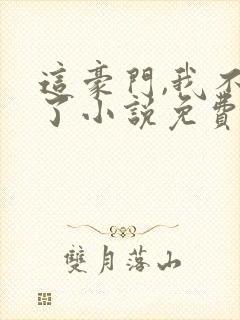 這豪門,我不
了小說免費
雙月落山